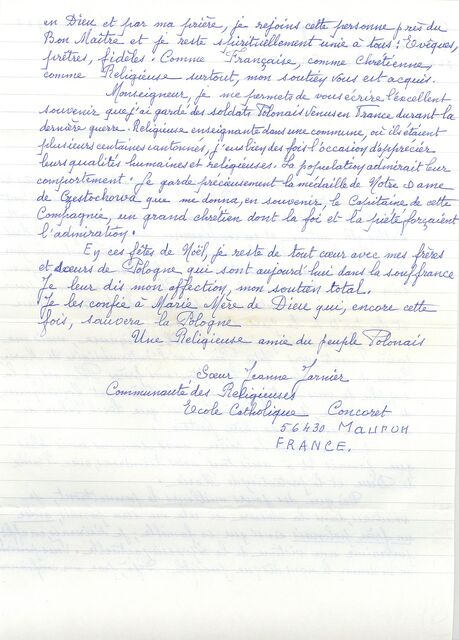 en Dieu et par ma prière, je rejoins cette personne près du
Bon Maître et je reste spirituellement unie à tous : Evêques,
prêtres, fidèles. Comme Française, comme Chrétienne,
comme Religieuse surtout, mon soutien vous est acquis.
Monseigneur, je me permets de vous écrire l'excellent
souvenir que j'ai gardé des soldats Polonais venus en France durant la
dernière guerre. Religieuse enseignante dans une commune, où ils étaient
plusieurs centaines cantonnés, j'eus bien des fois l'occasion d'apprécier
leurs qualités humaines et religieuses. La population admirait leur
comportement. Je garde précieusement la médaille de Notre Dame
de Częstochowa que me donna, en souvenir, le Capitaine de cette
Compagnie, un grand chrétien dont la foi et la piété forçaient
l'admiration.
En ces fêtes de Noël, je reste de tout cœur avec mes frères
et sœurs de Pologne qui sont aujourd'hui dans la souffrance
Je leur dis mon affection, mon soutien total.
Je les confie à Marie Mère de Dieu qui, encore cette
fois, sauvera la Pologne
Une Religieuse amie du peuple Polonais
Sœur Jeanne Jarnier
Communauté des Religieuses
Ecole Catholique Concoret
56430 MAURON
FRANCE.